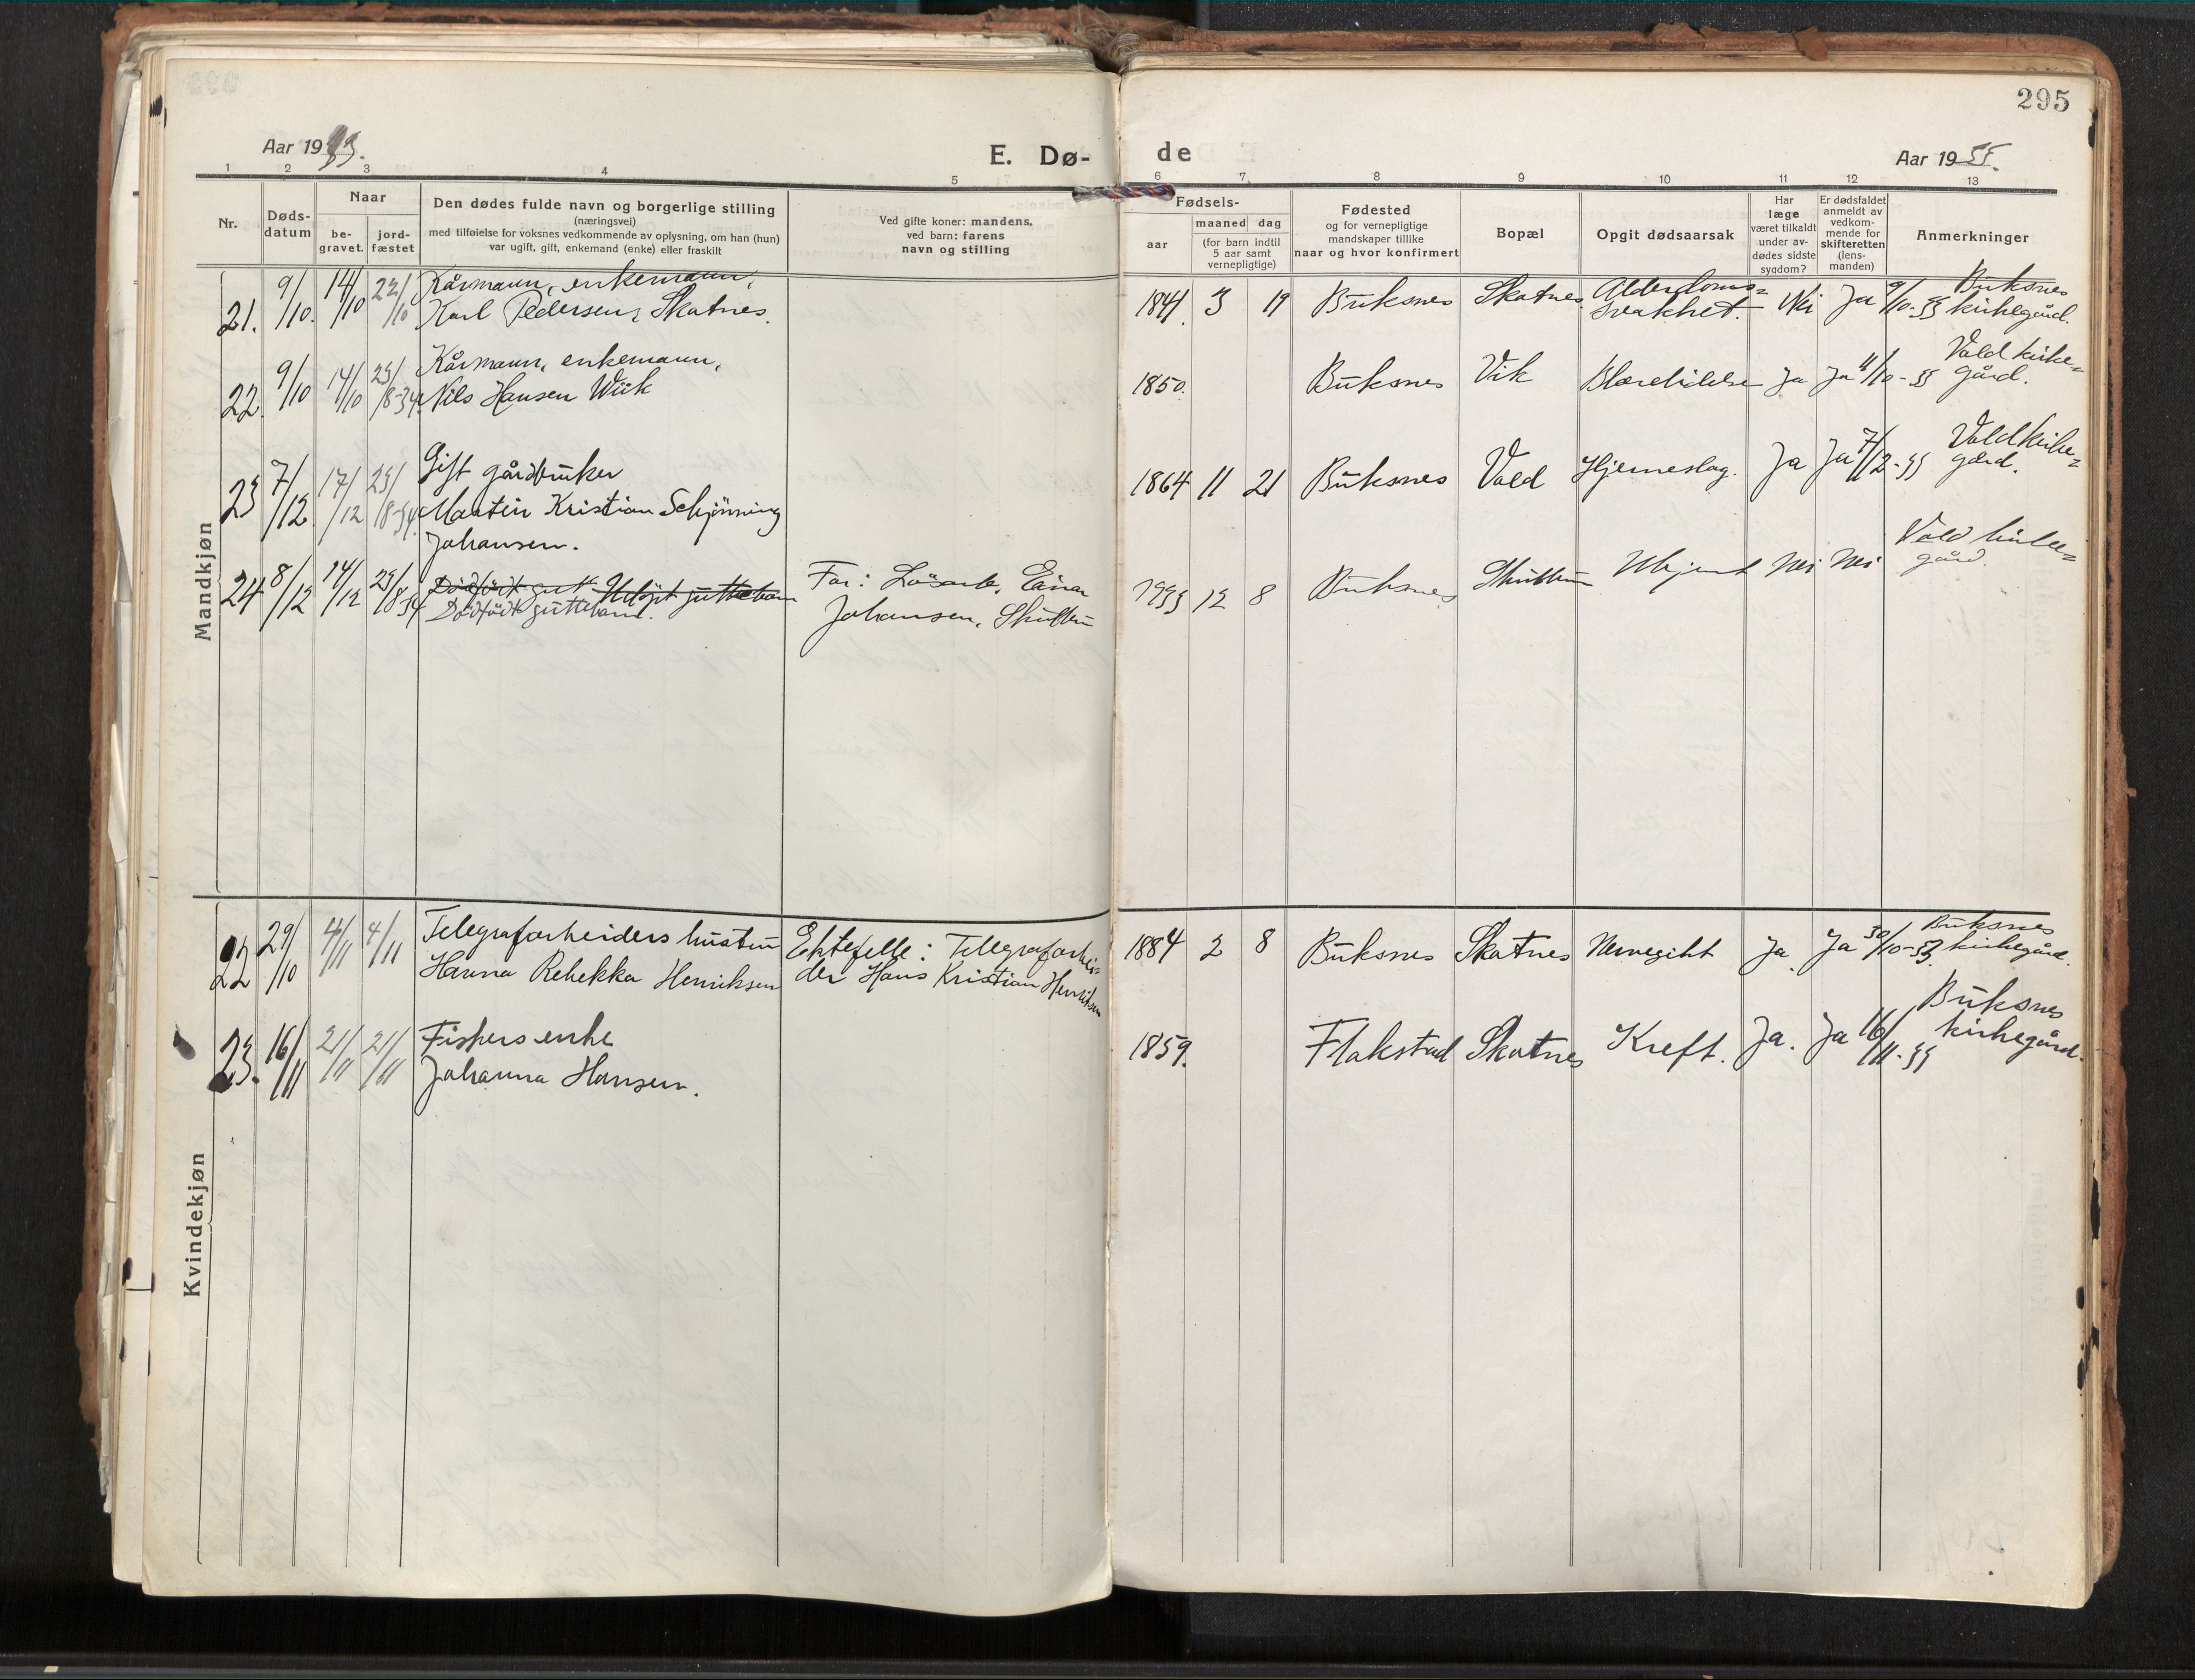 295
Aar 1933.
E. Dø-
de
Aar 1933.
1 2 3 4 5 6 7 8 9 10 11 12 13
Nr.
Døds-
datum
Naar
be-
gravet.
jord-
fæstet
Den dødes fulde navn og borgerlige stilling
(næringsvei)
med tilføielse for voksnes vedkommende av oplysning, om han (hun)
var ugift, gift, enkemand (enke) eller fraskilt
Ved gifte koner: mandens,
ved barn: farens
navn og stilling
Fødsels-
aar
maaned dag
(for barn indtil
5 aar samt
vernepligtige)
Fødested
og for vernepligtige
mandskaper tillike
naar og hvor konfirmert
Bopæl
Opgit dødsaarsak
Har
læge
været tilkaldt
under av-
dødes sidste
sygdom?
Er dødsfaldet
anmeldt av
vedkom-
mende for
skifteretten
(lens-
manden)
Anmerkninger
Mandkjøn
21. 9/10. 14/10 22/10 Kårmann, enkemann,
Karl Pedersen, Skatnes.
1841. 3 19 Buksnes Skatnes. Alderdoms=
svakhet. Nei Ja 9/10-33 Buksnes
kirkegård.
22. 9/10 14/10 23/8-34. Kårmann, enkemann,
Nils Hansen Wiik
1850. Buksnes Vik Blærelidelse Ja Ja 11/10-33 Vold kirke=
gård.
23 7/12. 17/12 23/8-34. Gift gårdbruker
Martin Kristian Schjønning
Johansen.
1864 11 21 Buksnes Vold Hjerneslag. Ja Ja 7/12-33 Vold kirke=
gård.
24 8/12 14/12 23/8 34 Dödfödt guttebarn.
Far: Lösarb. Einar
Johansen,
1933 12 8 Buksnes Ukjent Nei Nei Vold kirke=
gård.
Kvindekjøn
22 29/10 4/11 4/11 Telegrafarbeiders hustru
Hanna Rebekka Henriksen
Ektefelle: Telegrafarbei=
der Hans Kristian Henriksen
1884 2 8 Buksnes Skatnes Nervegikt Ja. Ja 30/10-33. Buksnes
kirkegård.
23. 16/11 21/11 21/11 Fiskers enke
Johanna Hansen.
1859. Flakstad Skatnes Kreft. Ja. Ja 16/11-33 Buksnes
kirkegård.